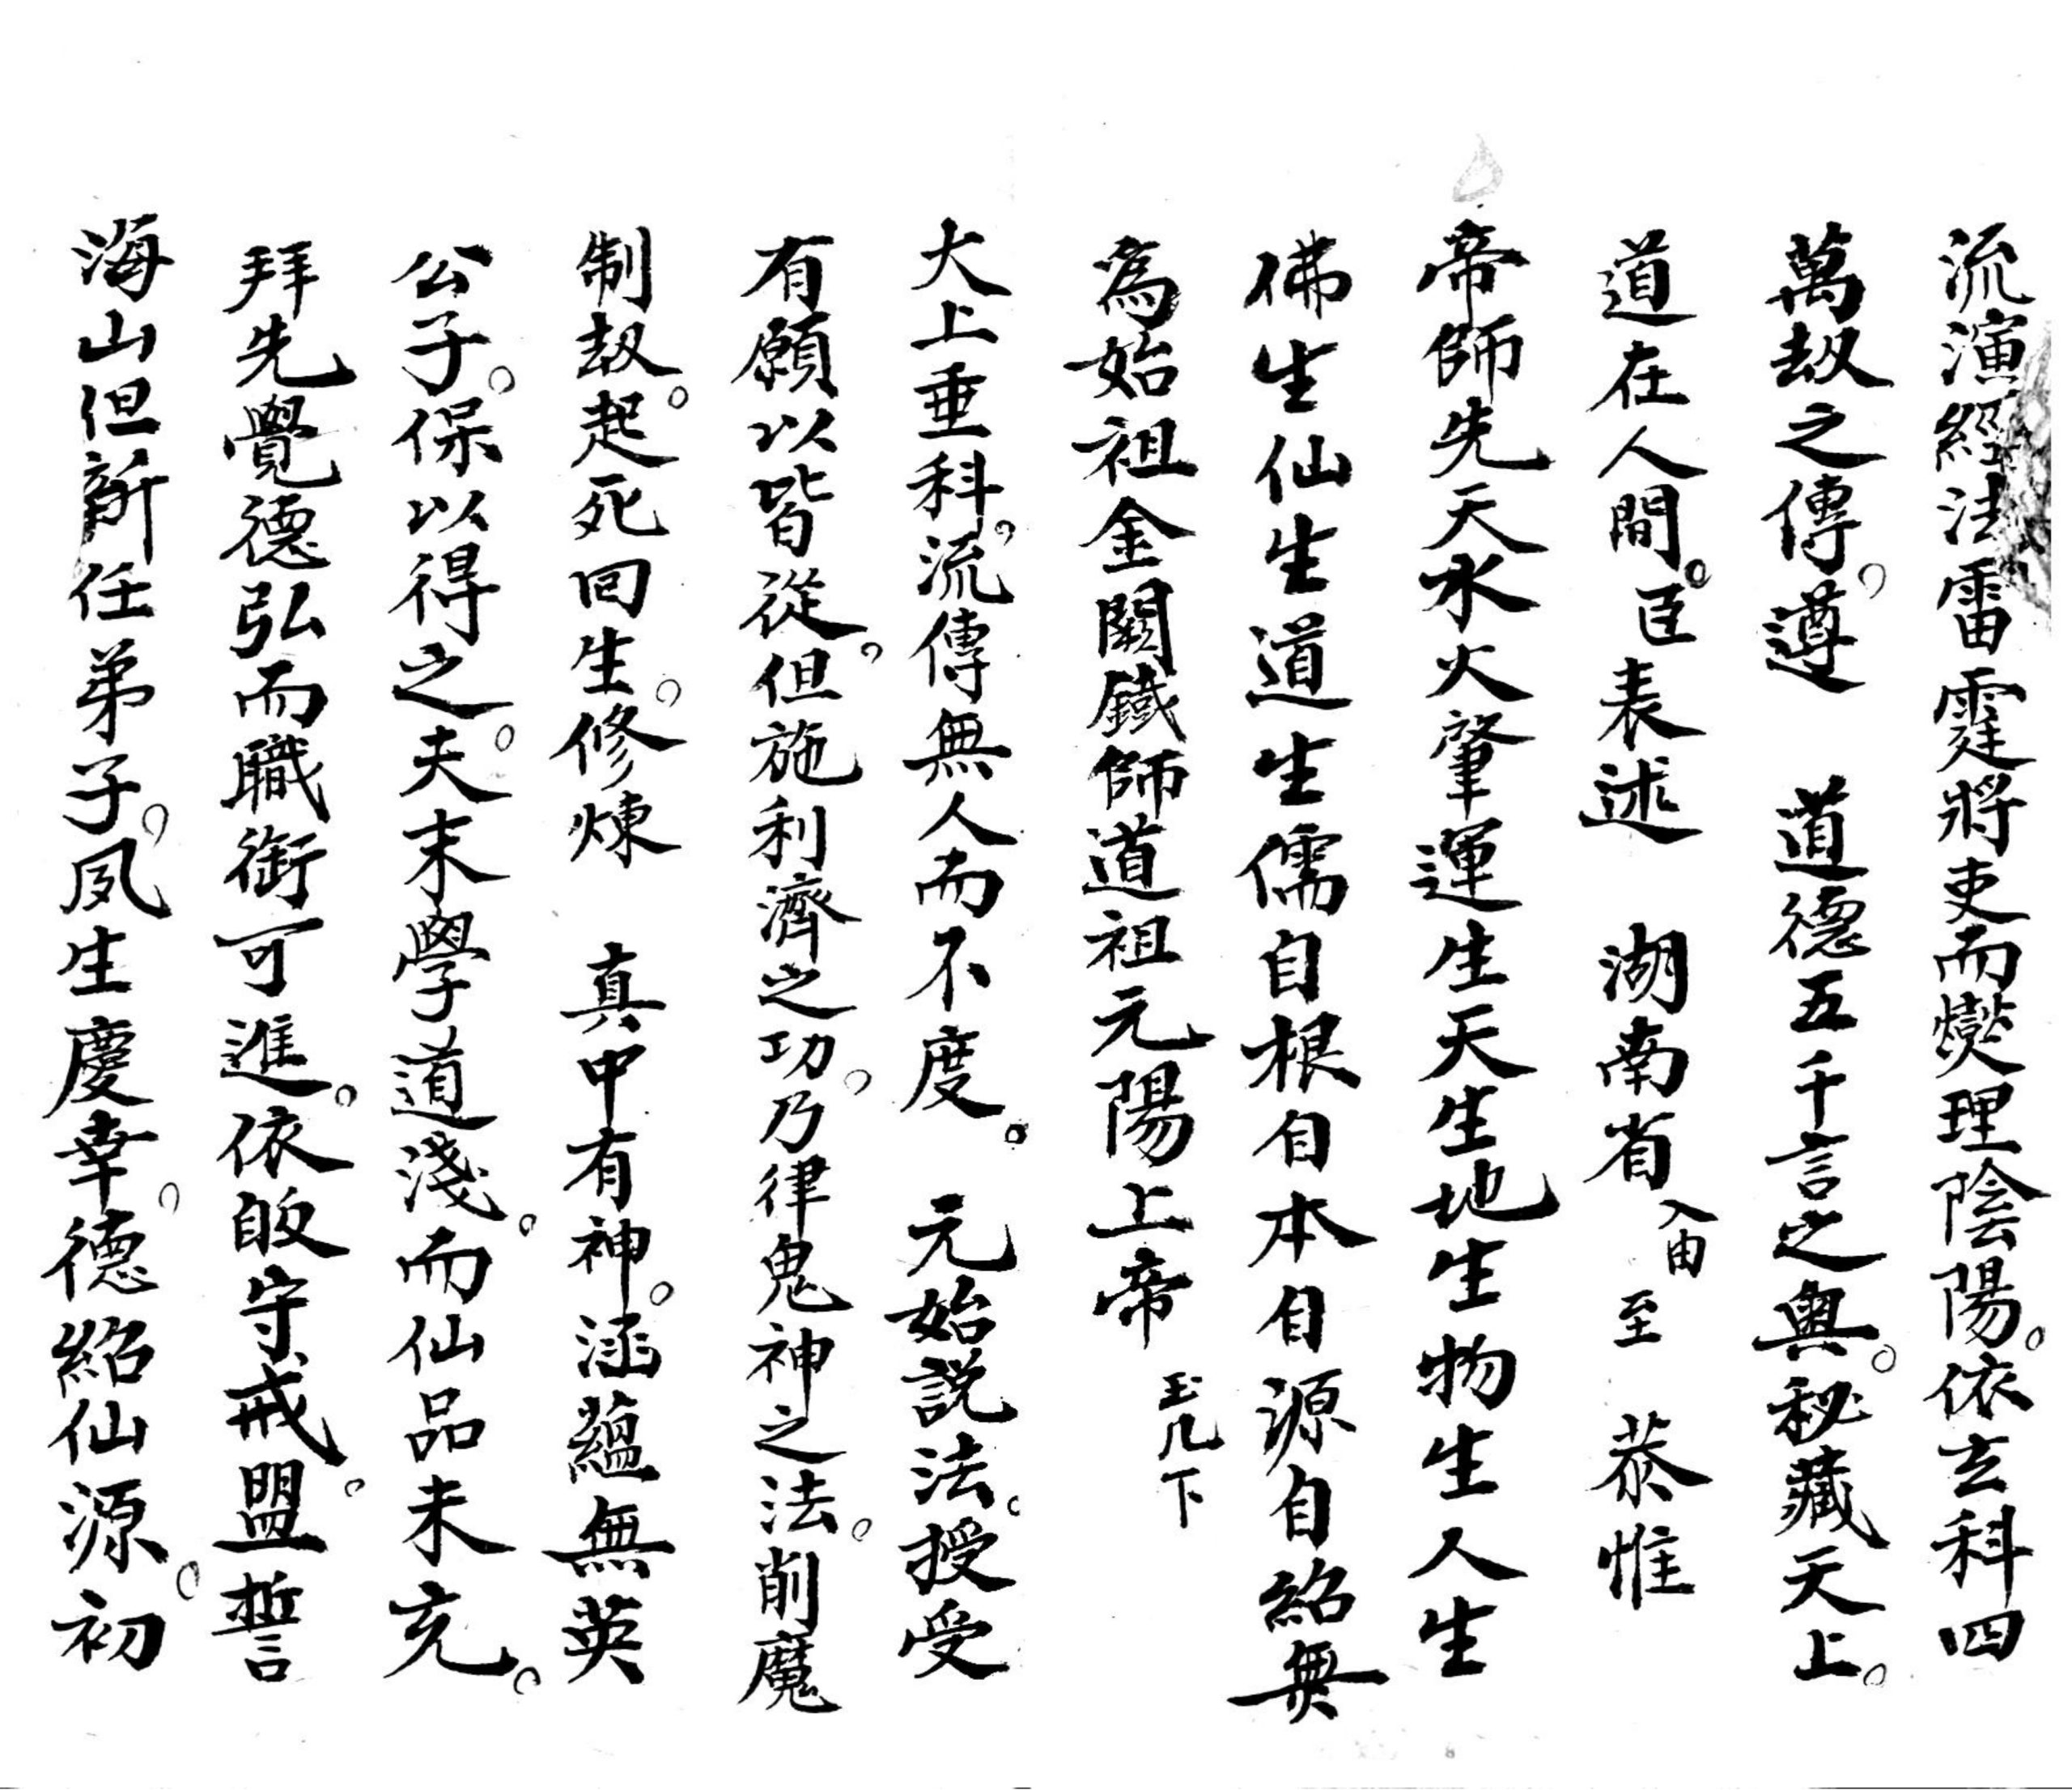 流演經法雷霆將吏而爕理陰陽。依玄科四
萬刼之傳。遵　道德五千言之奧。秘藏天上。
道在人間。臣表述　湖南省入由至　恭惟
帝師先天水火肇運生天生地生物生人生
佛生仙生道生儒自根自本自源自紹無
為始祖金闕鐵師道祖元陽上帝　玉几下
大上垂科。流傳無人而不度。　元始説法。授受
有願以皆從。但施利濟之功。乃律鬼神之法。削魔
制刼。起死回生。修煉　真中有神。涵蘊無英
公子。保以得之。夫末學道淺。而仙品未充。
拜先覺德弘而職銜可進。依皈守戒。盟誓
海山但新任弟子。夙生慶幸。德紹仙源。初